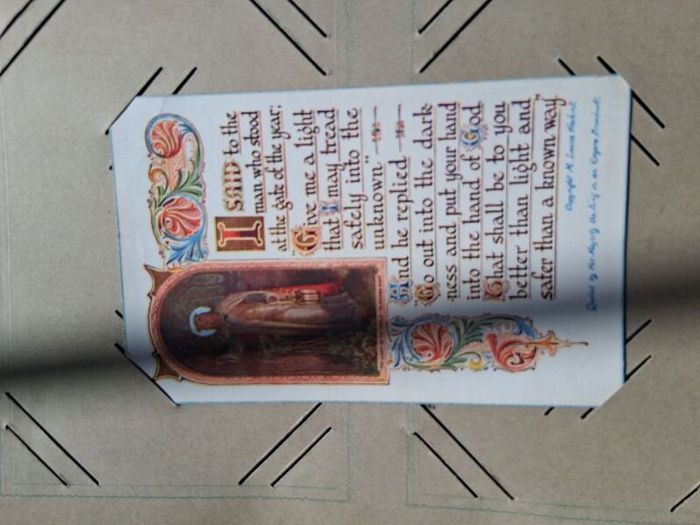 I SAID to the
man who stood
at the gate of the year:
"Give me a light
that I may tread
safely into the
unknown."
And he replied
"Go out into the dark-
ness and put your hand
into the hand of God
That shall be to you
better than light and
safer than a known way"
Copyright M. Louise Haskins.
Quoted by His Majesty the King in an Empire Broadcast.